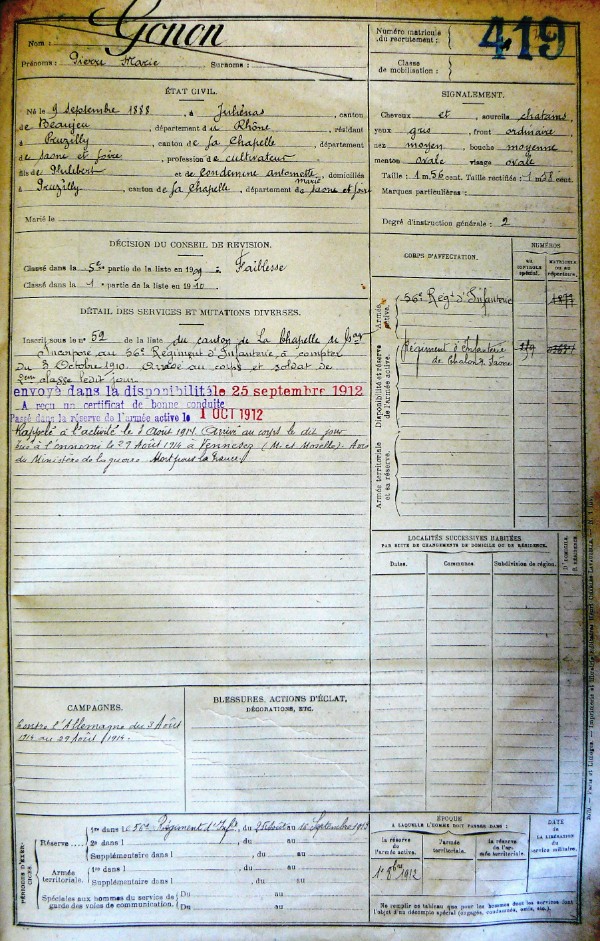 Nom : Gonon
Prénoms : Pierre Marie Surnoms :
Numéro matricule du recrutement : 419
Classe de mobilisation :
ÉTAT CIVIL.
Né le 9 septembre 1888, à Juliénas, canton
de Beaujeu, département du Rhône, résidant
à Pruzilly, canton de La Chapelle, département
de Saone et Loire, profession de cultivateur
fils de Philibert et de Condemine antomette marie, domiciliés
à Pruzilly, canton de La Chapelle, département de Saone et Loire
Marié le
SIGNALEMENT.
Cheveux et, sourcils chatains
yeux gris, front ordinaire
nez moyen, bouche moyenne
menton ovale visage ovale
Taille : 1 m. 56 cent. Taille rectifiée : 1 m. 58 cent.
Marques particulières :
Degré d'instruction générale : 2
DÉCISION DU CONSEIL DE REVISION.
Classé dans la 5e partie de la liste en 1909 : Faiblesse
Classé dans la 1 partie de la liste en 1910.
DÉTAIL DES SERVICES ET MUTATIONS DIVERSES.
Inscrit sous le no 59 de la liste du canton de La Chapelle
Incorporé au 56e Régiment d'Infanterie à compter
du 3 Octobre 1910. Arrivé au corps et soldat de
2eme classe ledit jour
envoyé dans la disponibilité le 25 septembre 1912
A reçu un certificat de bonne conduite
Passé dans la réserve de l'armée active le 1 OCT 1912
Rappelé à l'activité le 3 Août 1914 Arrivé au corps le dit jour
tué à l'ennemi le 29 Août 1914 à (M. et Moselle). Avis
du Ministère de la guerre. Mort pour la France.
CORPS D'AFFECTATION.
NUMÉROS
AU CONTROLE SPÉCIAL.
MATRICULE OU AU RÉPERTOIRE.
Armée active.
56e Régt d'Infanterie
Disponibilité et réserve de l'armée active.
Régiment d'Infanterie
de Chalon s. Saône
Armée territoriale et sa réserve.
LOCALITÉS SUCCESSIVES HABITÉES
PAR SUITE DE CHANGEMENTS DE DOMICILE OU DE RÉSIDENCE.
Dates. Communes. Subdivision de région. D. DOMICILE. R. RÉSIDENCE.
CAMPAGNES.
Contre l'Allemagne du 3 Août
1914 au 29 Août 1914.
BLESSURES, ACTIONS D'ÉCLAT,
DÉCORATIONS, ETC.
PÉRIODES D'EXERCICES
Réserve
1re dans le 56e Régiment d'Infie, du 25 Août au 10 Septembre 1913
2e dans l , du au
Supplémentaire dans l , du au
Armée territoriale.
1re dans l , du au
Supplémentaire dans l , du au
Spéciales aux hommes du service de
garde des voies de communication.
Du au
Du au
ÉPOQUE
A LAQUELLE L'HOMME DOIT PASSER DANS :
la réserve de l'armée active.
l'armée territoriale.
la réserve de l'armée territoriale.
DATE
DE LA LIBÉRATION
du service militaire.
1er 8bre
1912
Ne remplir ce tableau que pour les hommes dont les services sont
l'objet d'un décompte spécial (engagés, condamnés, omis, etc.).